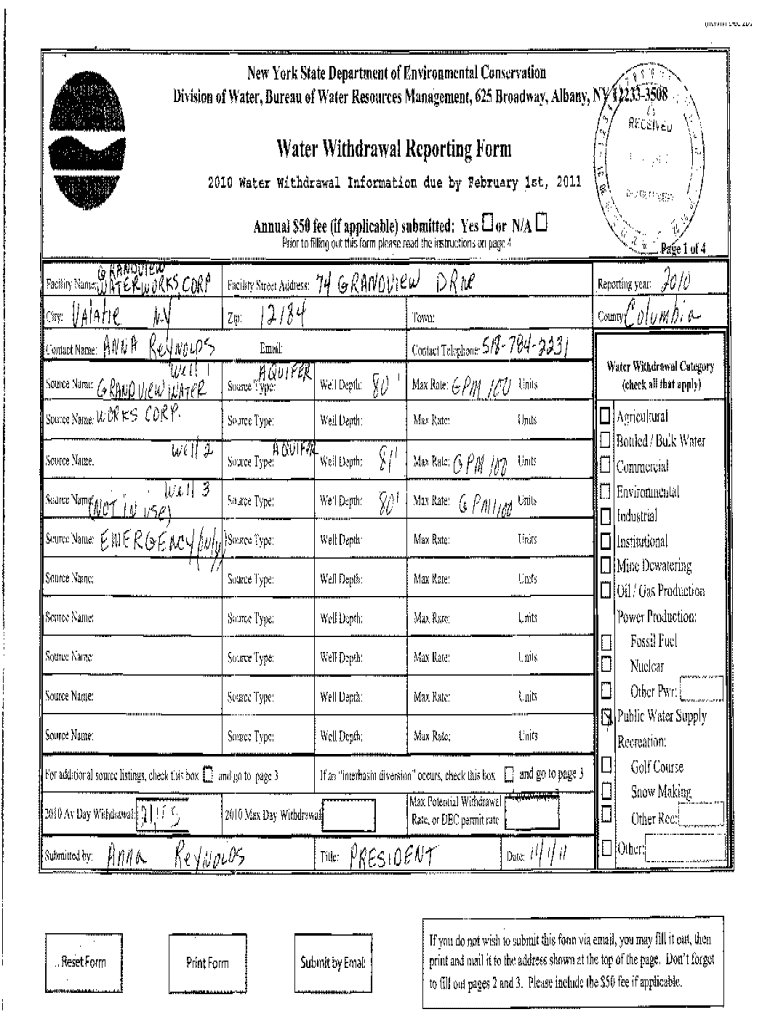 New York State Department of Environmental Conservation
Division of Water, Bureau of Water Resources Management, 625 Broadway, Albany, NY 12233-3508
RECEIVED
Water Withdrawal Reporting Form
2010 Water Withdrawal Information due by February 1st, 2011
Annual $50 fee (if applicable) submitted: Yes or N/A
Prior to filling out this form please read the instructions on page 4
Page 1 of 4
Facility Name: GRANDVIEW WATERWORKS CORP Facility Street Address: 74 GRANDVIEW DRIVE Reporting year: 2010
City: Valatie NY Zip: 12184 Town: County: Columbia
Contact Name: ANNA REYNOLDS Email: Contact Telephone: 518-784-2231
Water Withdrawal Category
(check all that apply)
Source Name: Well 1 GRANDVIEW WATER Source Type: AQUIFER Well Depth: 80' Max Rate: GPM 100 Units
Source Name: WORKS CORP. Source Type: Well Depth: Max Rate: Units
Source Name: Well 2 Source Type: AQUIFER Well Depth: 81' Max Rate: GPM 100 Units
Source Name: Well 3 (NOT IN USE) Source Type: Well Depth: 80' Max Rate: GPM 100 Units
Source Name: EMERGENCY only Source Type: Well Depth: Max Rate: Units
Source Name: Source Type: Well Depth: Max Rate: Units
Source Name: Source Type: Well Depth: Max Rate: Units
Source Name: Source Type: Well Depth: Max Rate: Units
Source Name: Source Type: Well Depth: Max Rate: Units
Source Name: Source Type: Well Depth: Max Rate: Units
Agricultural
Bottled / Bulk Water
Commercial
Environmental
Industrial
Institutional
Mine Dewatering
Oil / Gas Production
Power Production:
Fossil Fuel
Nuclear
Other Pwr:
Public Water Supply
Recreation:
Golf Course
Snow Making
Other Rec:
Other:
For additional source listings, check this box and go to page 3 If an "interbasin diversion" occurs, check this box and go to page 3
2010 Av Day Withdrawal: 2010 Max Day Withdrawal Max Potential Withdrawal
Rate, or DEC permit rate
Submitted by: Anna Reynolds Title: PRESIDENT Date: 1/1/11
Reset Form Print Form Submit by Email
If you do not wish to submit this form via email, you may fill it out, then
print and mail it to the address shown at the top of the page. Don't forget
to fill out pages 2 and 3. Please include the $50 fee if applicable.